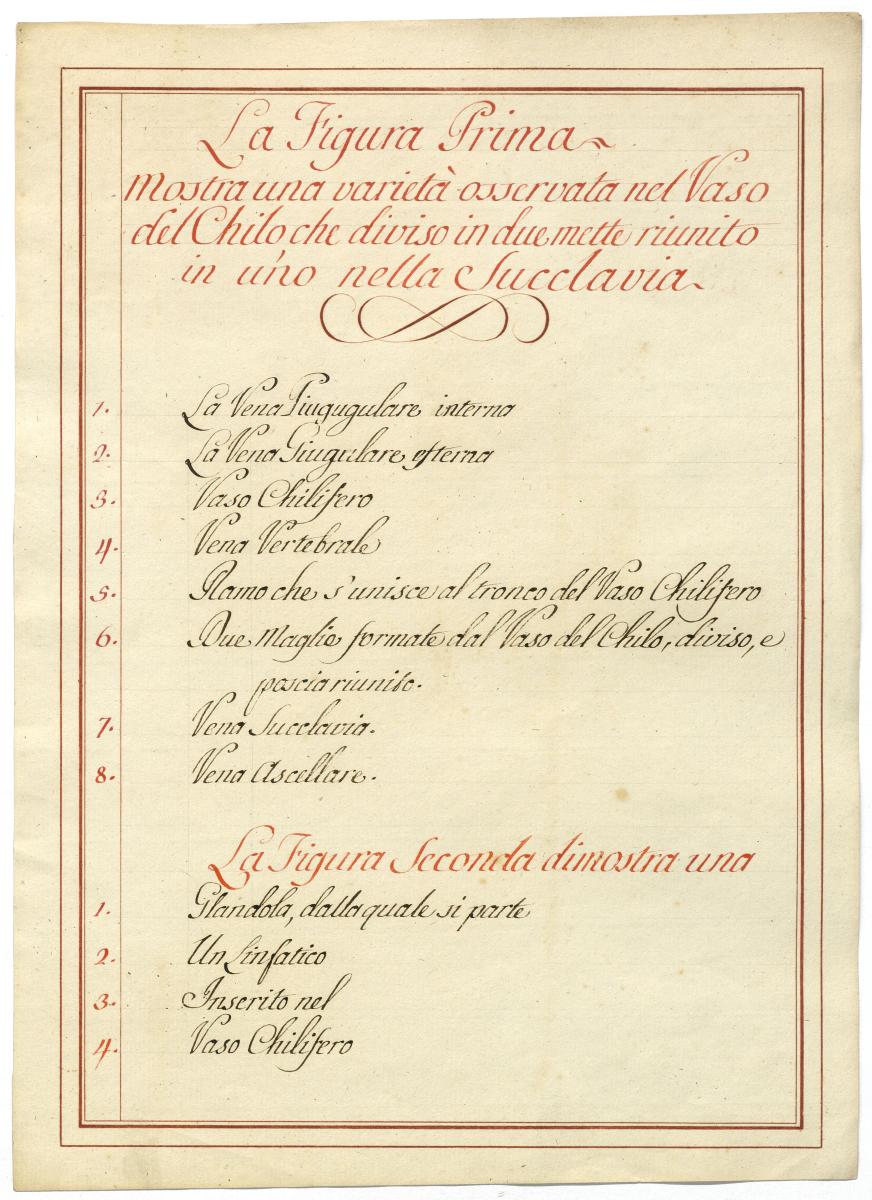 La Figura Prima
Mostra una varietà osservata nel Vaso
del Chilo che diviso in due mette riunito
in uno nella Succlavia
1. La Vena Giugugulare interna
2. La Vena Giugulare esterna
3. Vaso Chilifero
4. Vena Vertebrale
5. Ramo che s'unisce al tronco del Vaso Chilifero
6. Due Maglie formate dal Vaso del Chilo, diviso, e
poscia riunito.
7. Vena Succlavia.
8. Vena Ascellare.
La Figura Seconda dimostra una
1. Glandola, dalla quale si parte
2. Un Linfatico
3. Inserito nel
4. Vaso Chilifero